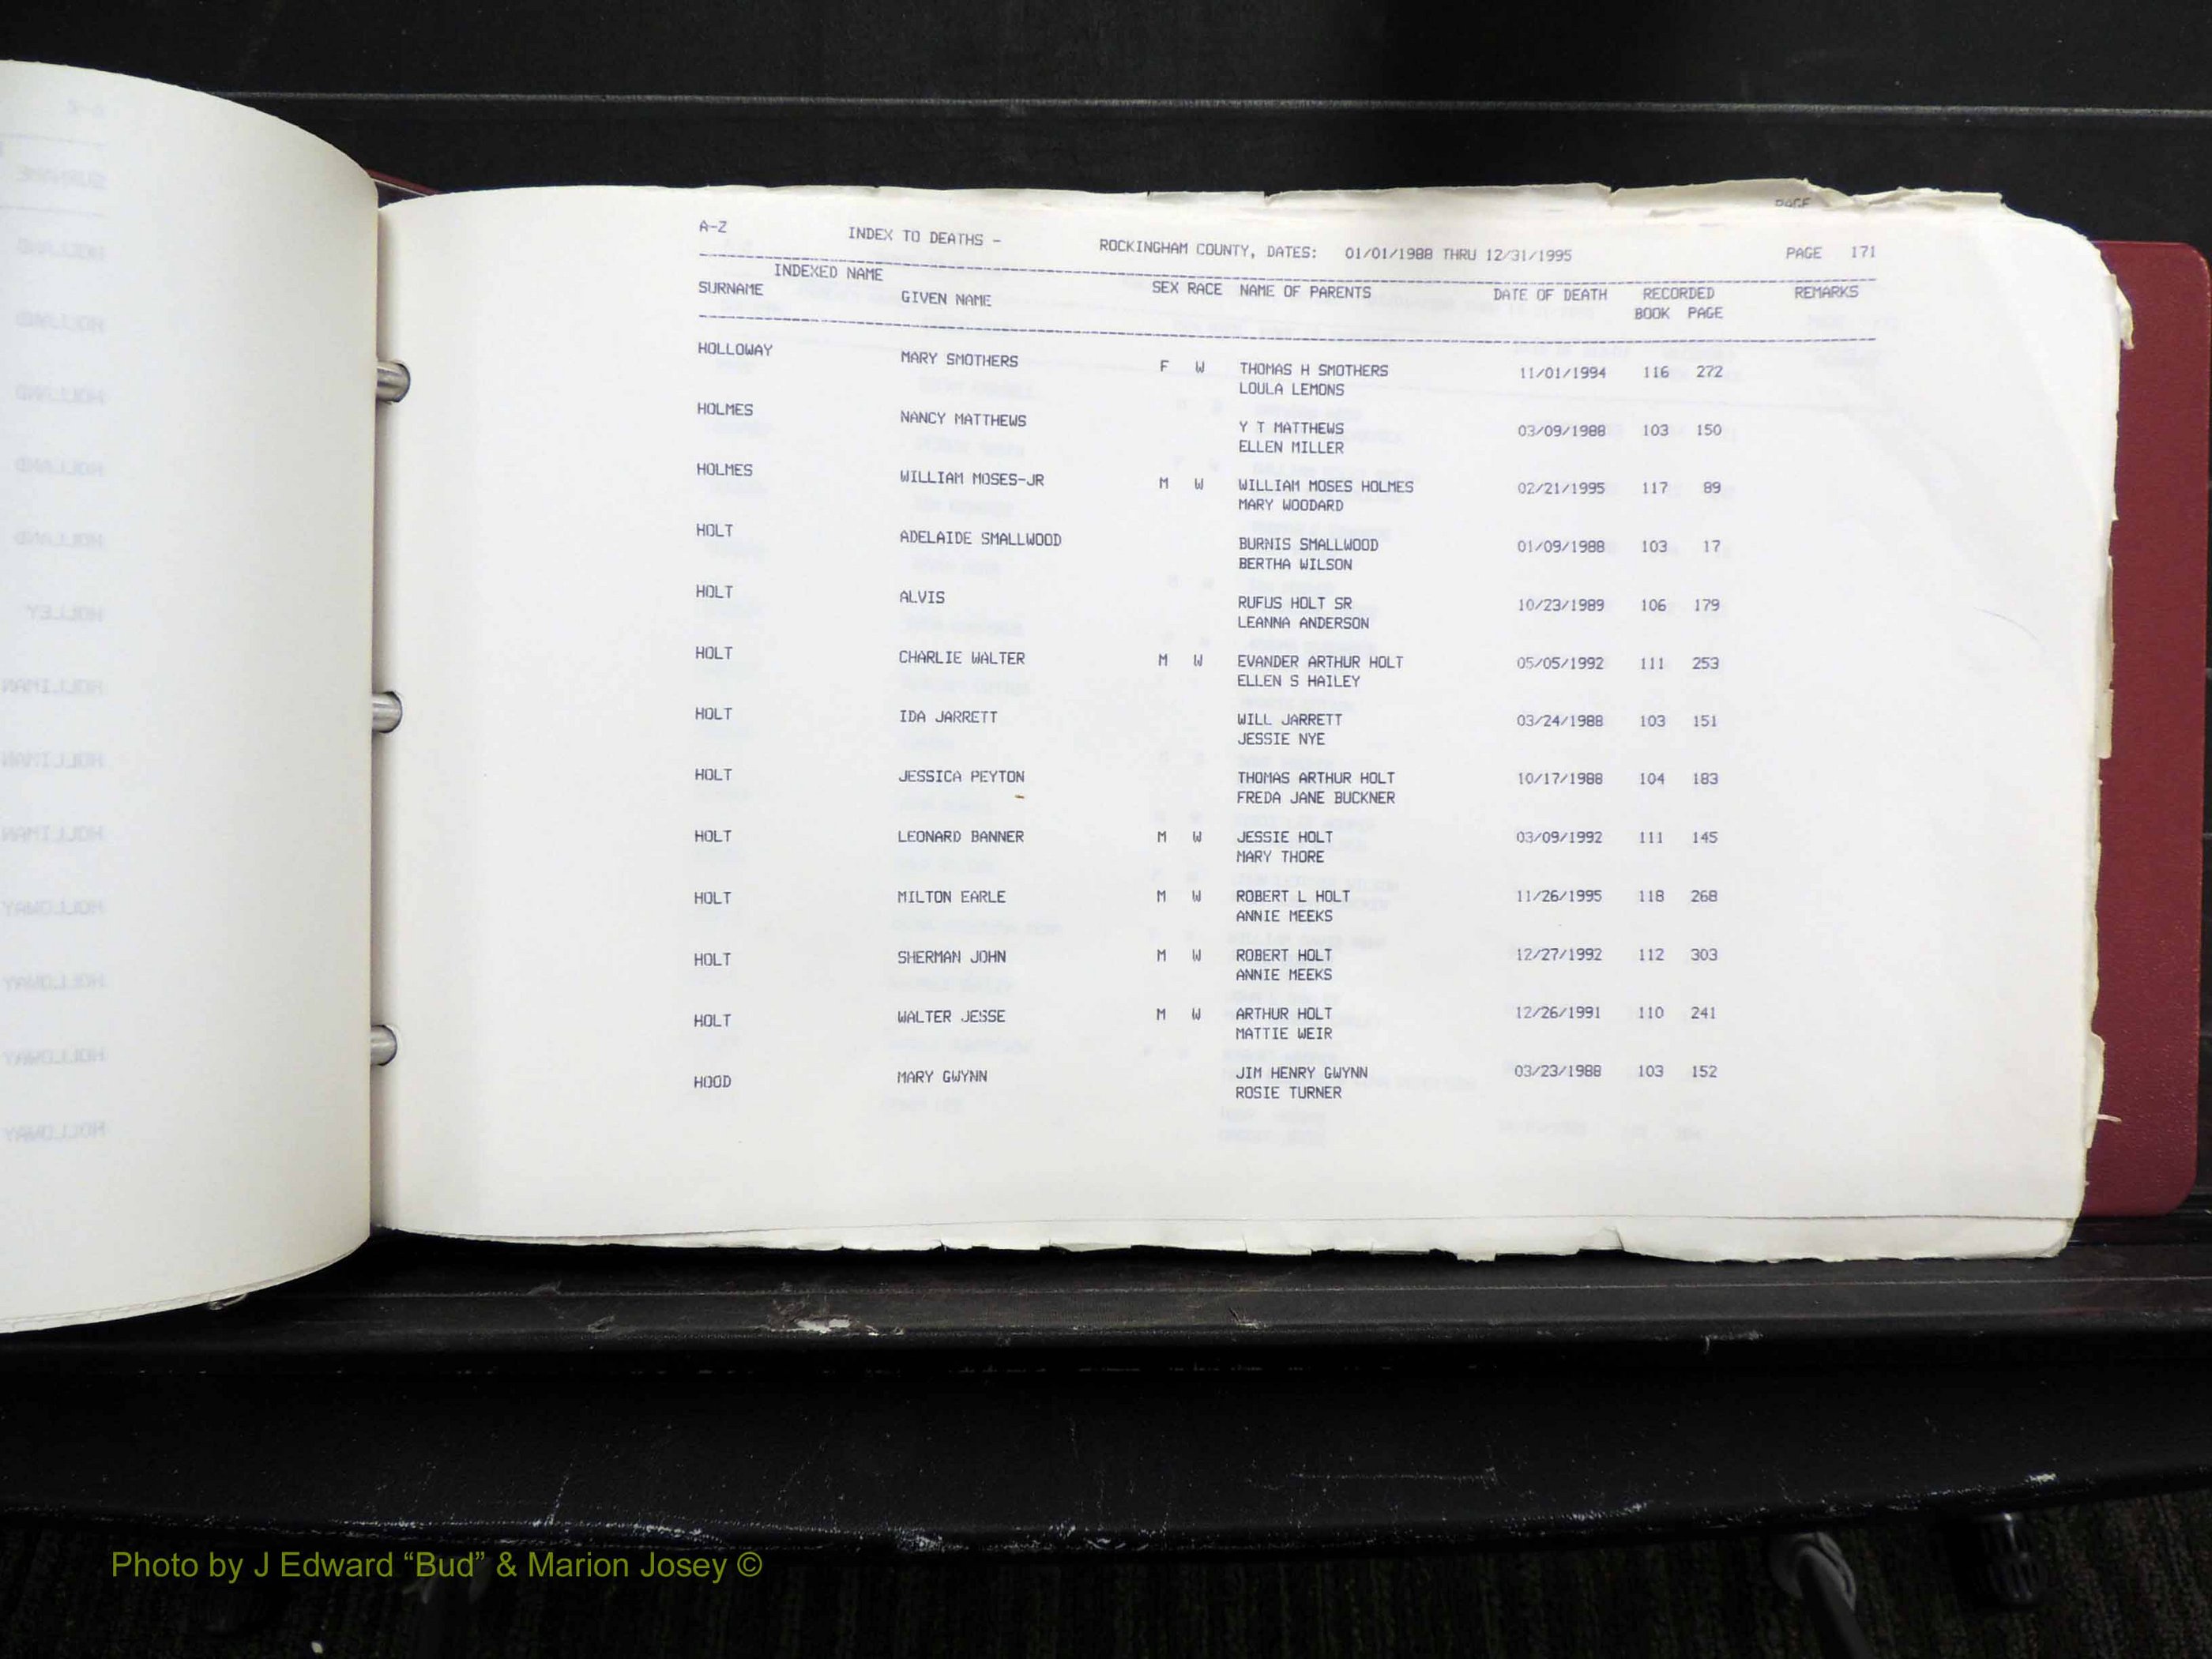 PAGE
A-Z INDEX TO DEATHS - ROCKINGHAM COUNTY, DATES: 01/01/1988 THRU 12/31/1995 PAGE 171
INDEXED NAME
SURNAME GIVEN NAME SEX RACE NAME OF PARENTS DATE OF DEATH RECORDED REMARKS
BOOK PAGE
HOLLOWAY MARY SMOTHERS F W THOMAS H SMOTHERS 11/01/1994 116 272
LOULA LEMONS
HOLMES NANCY MATTHEWS Y T MATTHEWS 03/09/1988 103 150
ELLEN MILLER
HOLMES WILLIAM MOSES-JR M W WILLIAM MOSES HOLMES 02/21/1995 117 89
MARY WOODARD
HOLT ADELAIDE SMALLWOOD BURNIS SMALLWOOD 01/09/1988 103 17
BERTHA WILSON
HOLT ALVIS RUFUS HOLT SR 10/23/1989 106 179
LEANNA ANDERSON
HOLT CHARLIE WALTER M W EVANDER ARTHUR HOLT 05/05/1992 111 253
ELLEN S HAILEY
HOLT IDA JARRETT WILL JARRETT 03/24/1988 103 151
JESSIE NYE
HOLT JESSICA PEYTON THOMAS ARTHUR HOLT 10/17/1988 104 183
FREDA JANE BUCKNER
HOLT LEONARD BANNER M W JESSIE HOLT 03/09/1992 111 145
MARY THORE
HOLT MILTON EARLE M W ROBERT L HOLT 11/26/1995 118 268
ANNIE MEEKS
HOLT SHERMAN JOHN M W ROBERT HOLT 12/27/1992 112 303
ANNIE MEEKS
HOLT WALTER JESSE M W ARTHUR HOLT 12/26/1991 110 241
MATTIE WEIR
HOOD MARY GWYNN JIM HENRY GWYNN 03/23/1988 103 152
ROSIE TURNER
Photo by J Edward “Bud” & Marion Josey ©